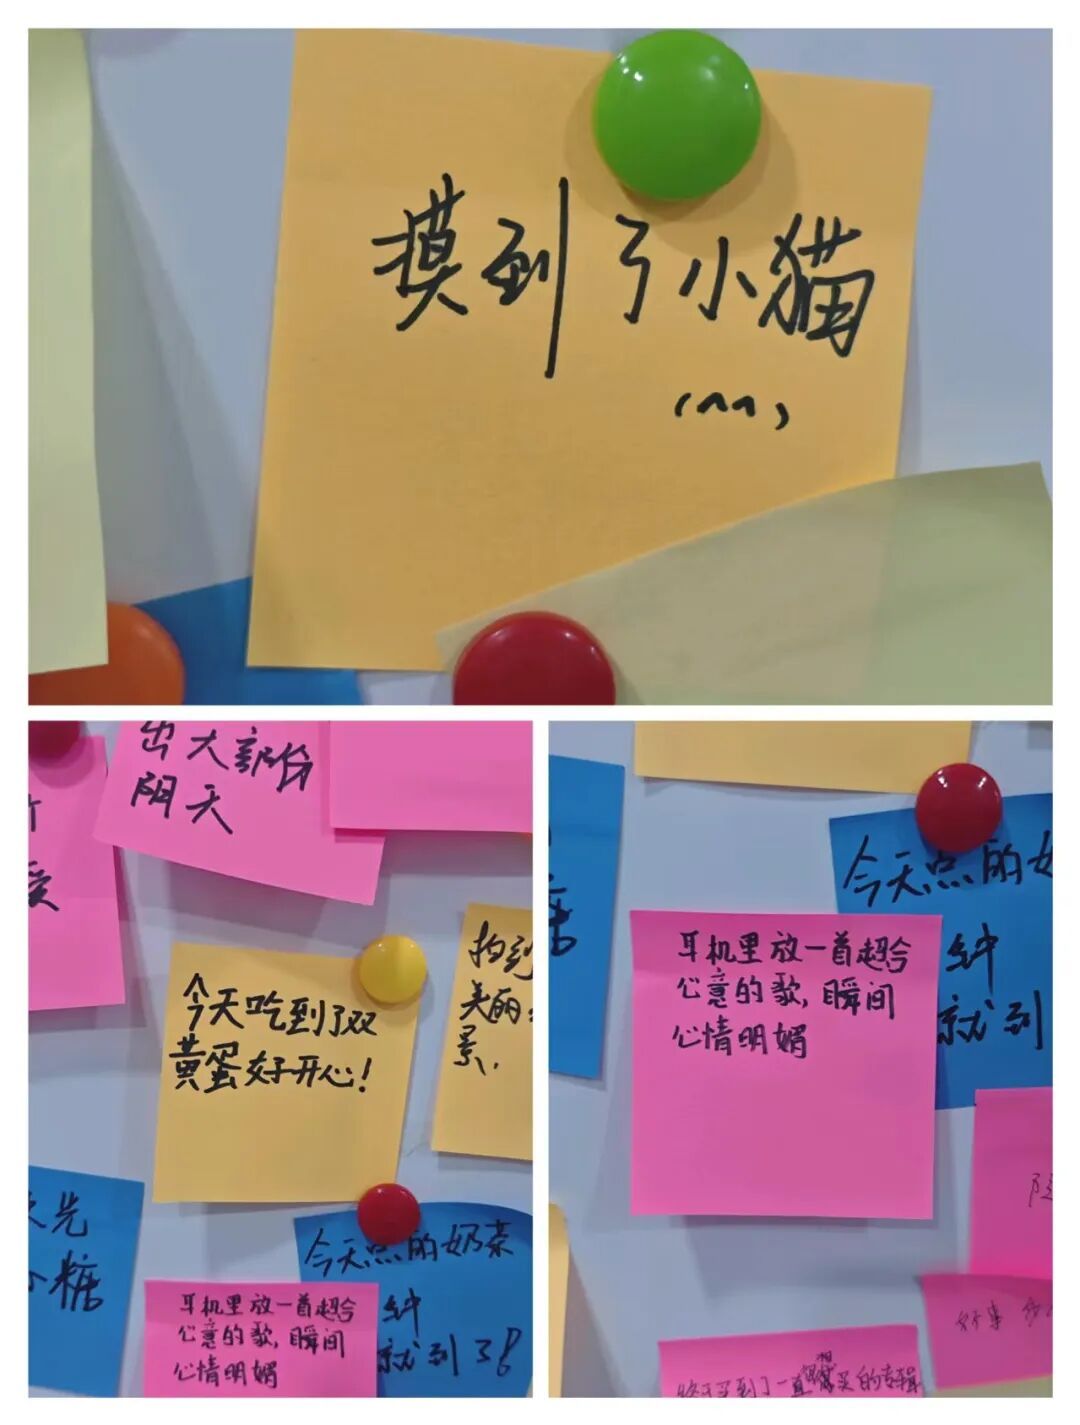 摸到了小猫
(^^)
出大部份
阴天
爱
今天吃到了双
黄蛋好开心!
拍到
美丽
景.
先
糖
今天点的奶茶
钟
就到了!
耳机里放一首超合
心意的歌,瞬间
心情明媚
今天点的奶
钟
就到
耳机里放一首超合
心意的歌,瞬间
心情明媚
好事
终于买到了一直想买的专辑